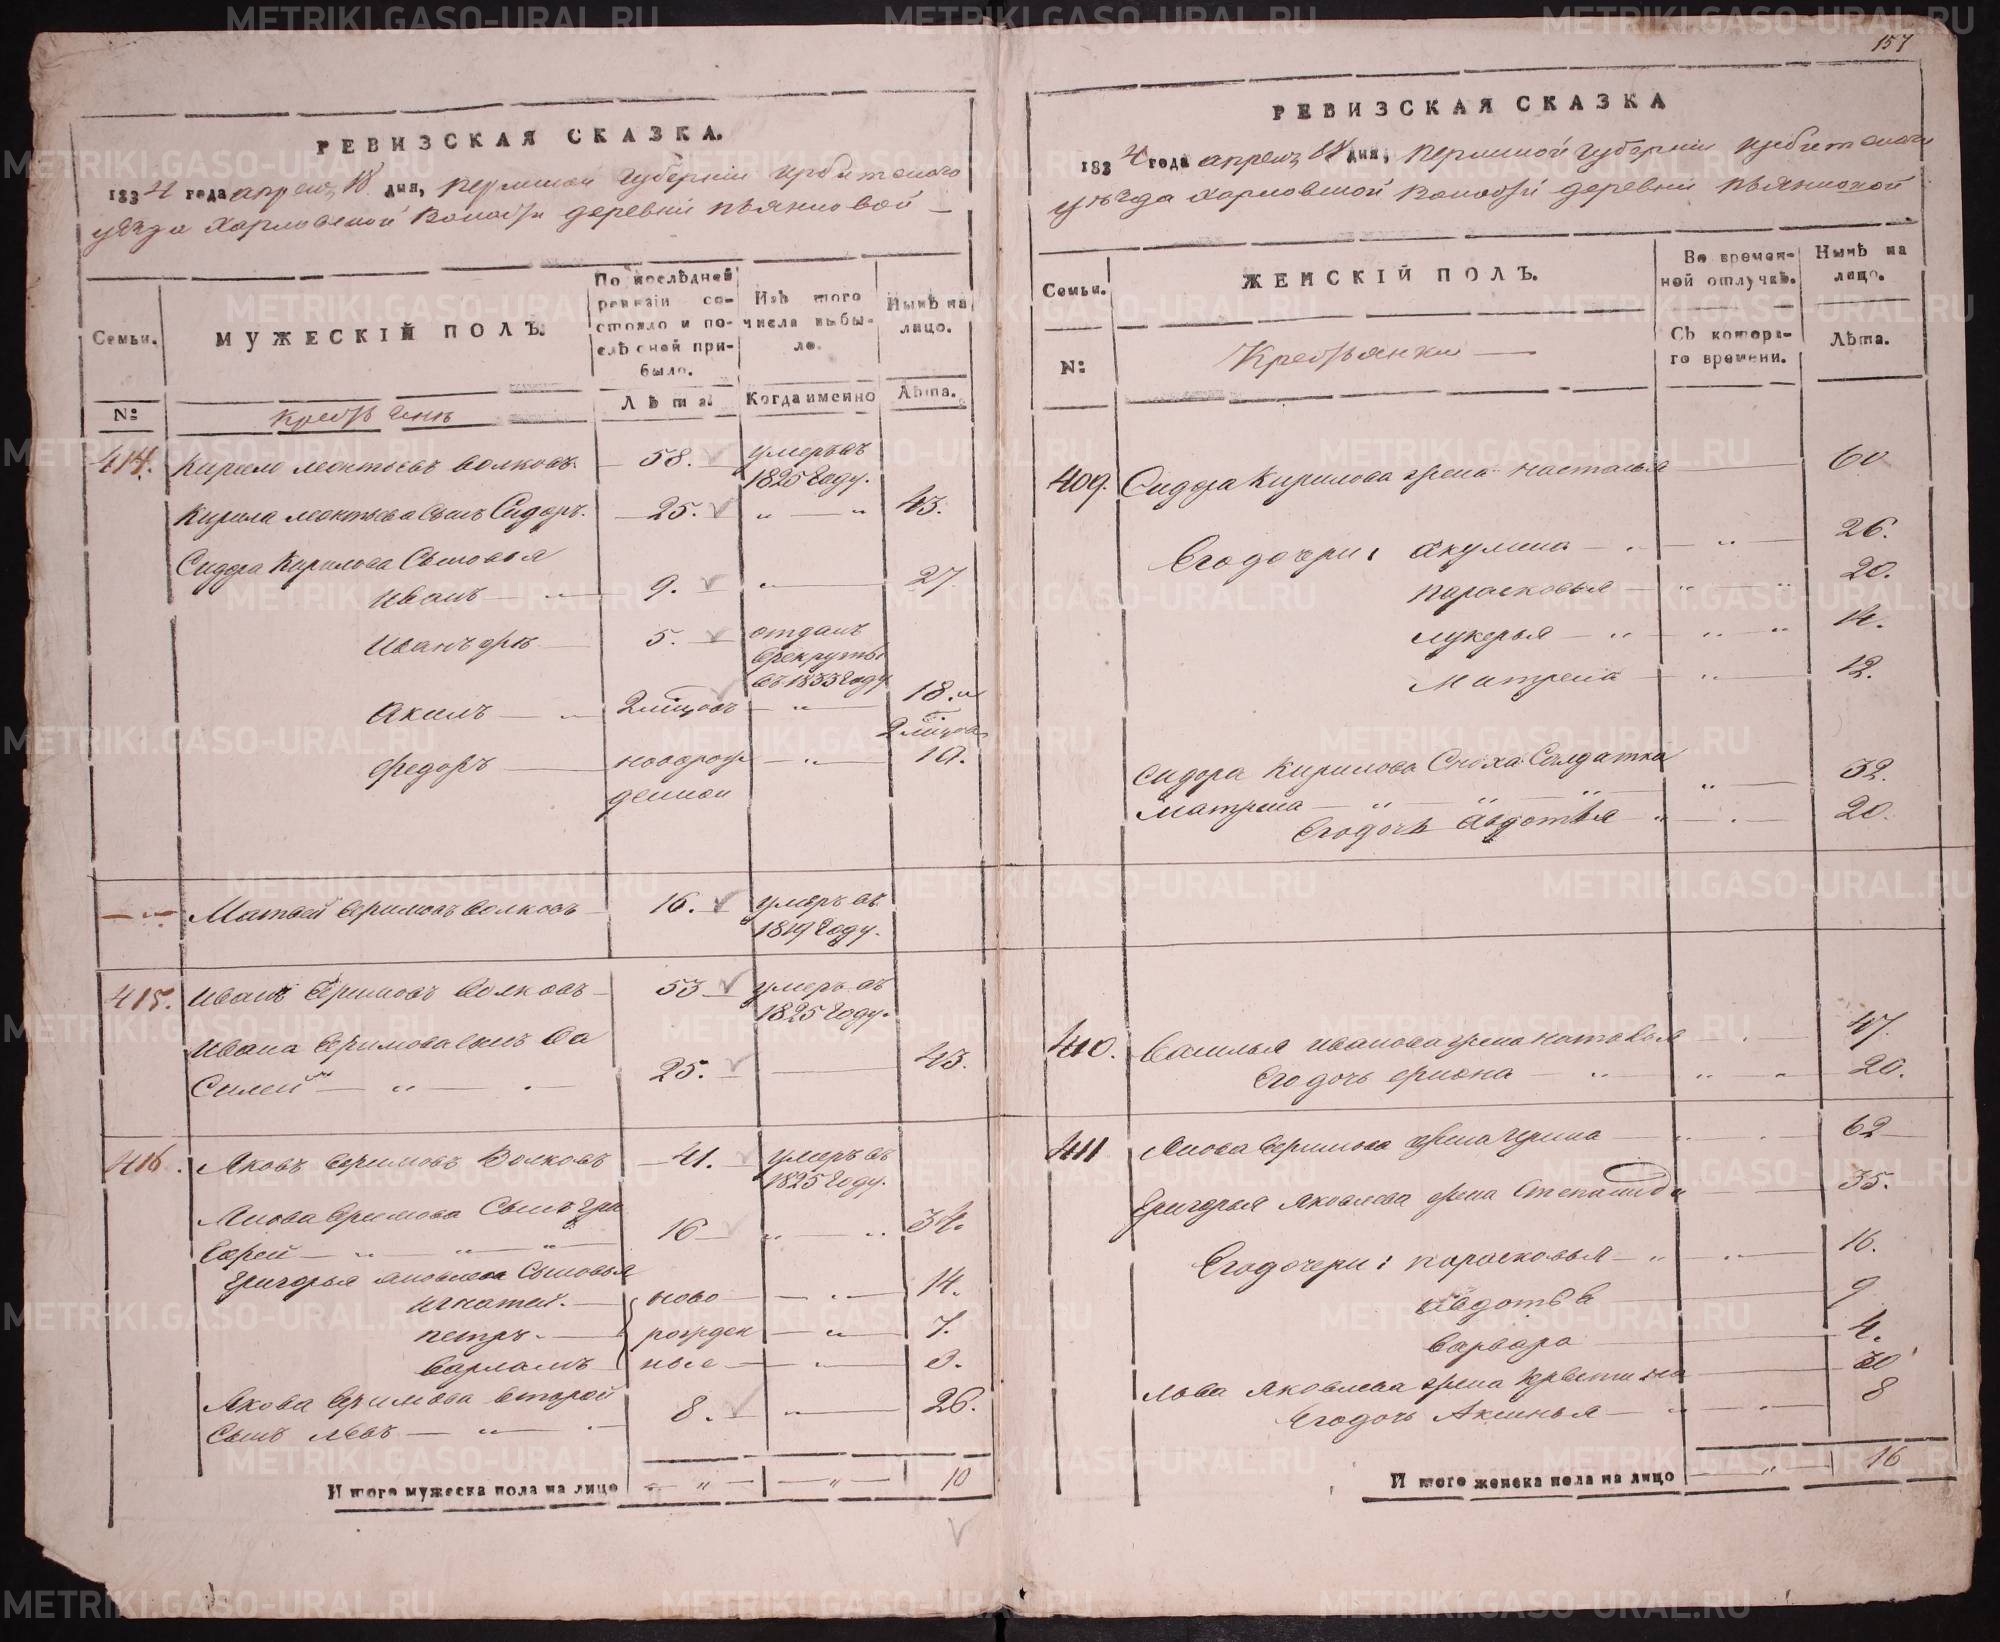 157
РЕВИЗСКАЯ СКАЗКА.
1834 года апреля 18 дня, Пермской Губернии Ирбитского
уѣзда Харловской Волости деревни Пьянковой
Семьи.
МУЖЕСКІЙ ПОЛЪ.
По послѣдней ревизіи состояло и послѣ оной прибыло.
Изъ того числа выбыло.
Нынѣ на лицо.
№
Крестьянъ
Лѣта.
Когда именно
Лѣта.
414. Кирило Леонтьевъ Волковъ 58. умеръ въ
1825 году.
Кирила Леонтьева сынъ Сидоръ. 25. 43.
Сидора Кирилова Сыновья
Иванъ 9. 27
Иванъ 5. отданъ
в рекруты
въ 1833 году
Акимъ 2 мѣсцовъ 18. и
2 мѣсцовъ
Федоръ новорож 10.
денной
Матвей Ефимовъ Волковъ 16. умеръ въ
1819 году.
415. Иванъ Ефимовъ Волковъ 53 умеръ въ
1825 году.
Ивана Ефимова сынъ Ва
Силей 25. 43.
416. Яковъ Ефимовъ Волковъ 41. умеръ въ
1825 году.
Якова Ефимова Сынъ Гри
Горей 16 34.
Григорья Яковлева Сыновья
Игнатей. ново 14.
Петръ рожден 7.
Варламъ ные 3.
Якова Ефимова второй
Сынъ Левъ 8. 26.
Итого мужеска пола на лицо 10
РЕВИЗСКАЯ СКАЗКА
1834 года апреля 18 дня, Пермской Губернии Ирбитского
уѣзда Харловской Волости деревни Пьянковой
Семьи.
ЖЕНСКІЙ ПОЛЪ.
Во временной отлучкѣ.
Нынѣ на лицо.
№
Крестьянки
Съ котораго времени.
Лѣта.
409. Сидора Кирилова жена Насталья 60
Его дочери: Акулина 26.
Парасковья 20.
Лукерья 14.
Матрена 12.
Сидора Кирилова Сноха Солдатка
Матрена 32.
Его дочь Авдотья 20.
410. Василья Иванова жена 47.
Его дочь 20.
411 Якова Ефимова жена Ирина 62
Григорья Яковлева жена Степанида 35.
Его дочери: Парасковья 16.
Авдотья 9
Варвара 4.
Льва Яковлева жена 30
Его дочь Аксинья 8
Итого женска пола на лицо 16